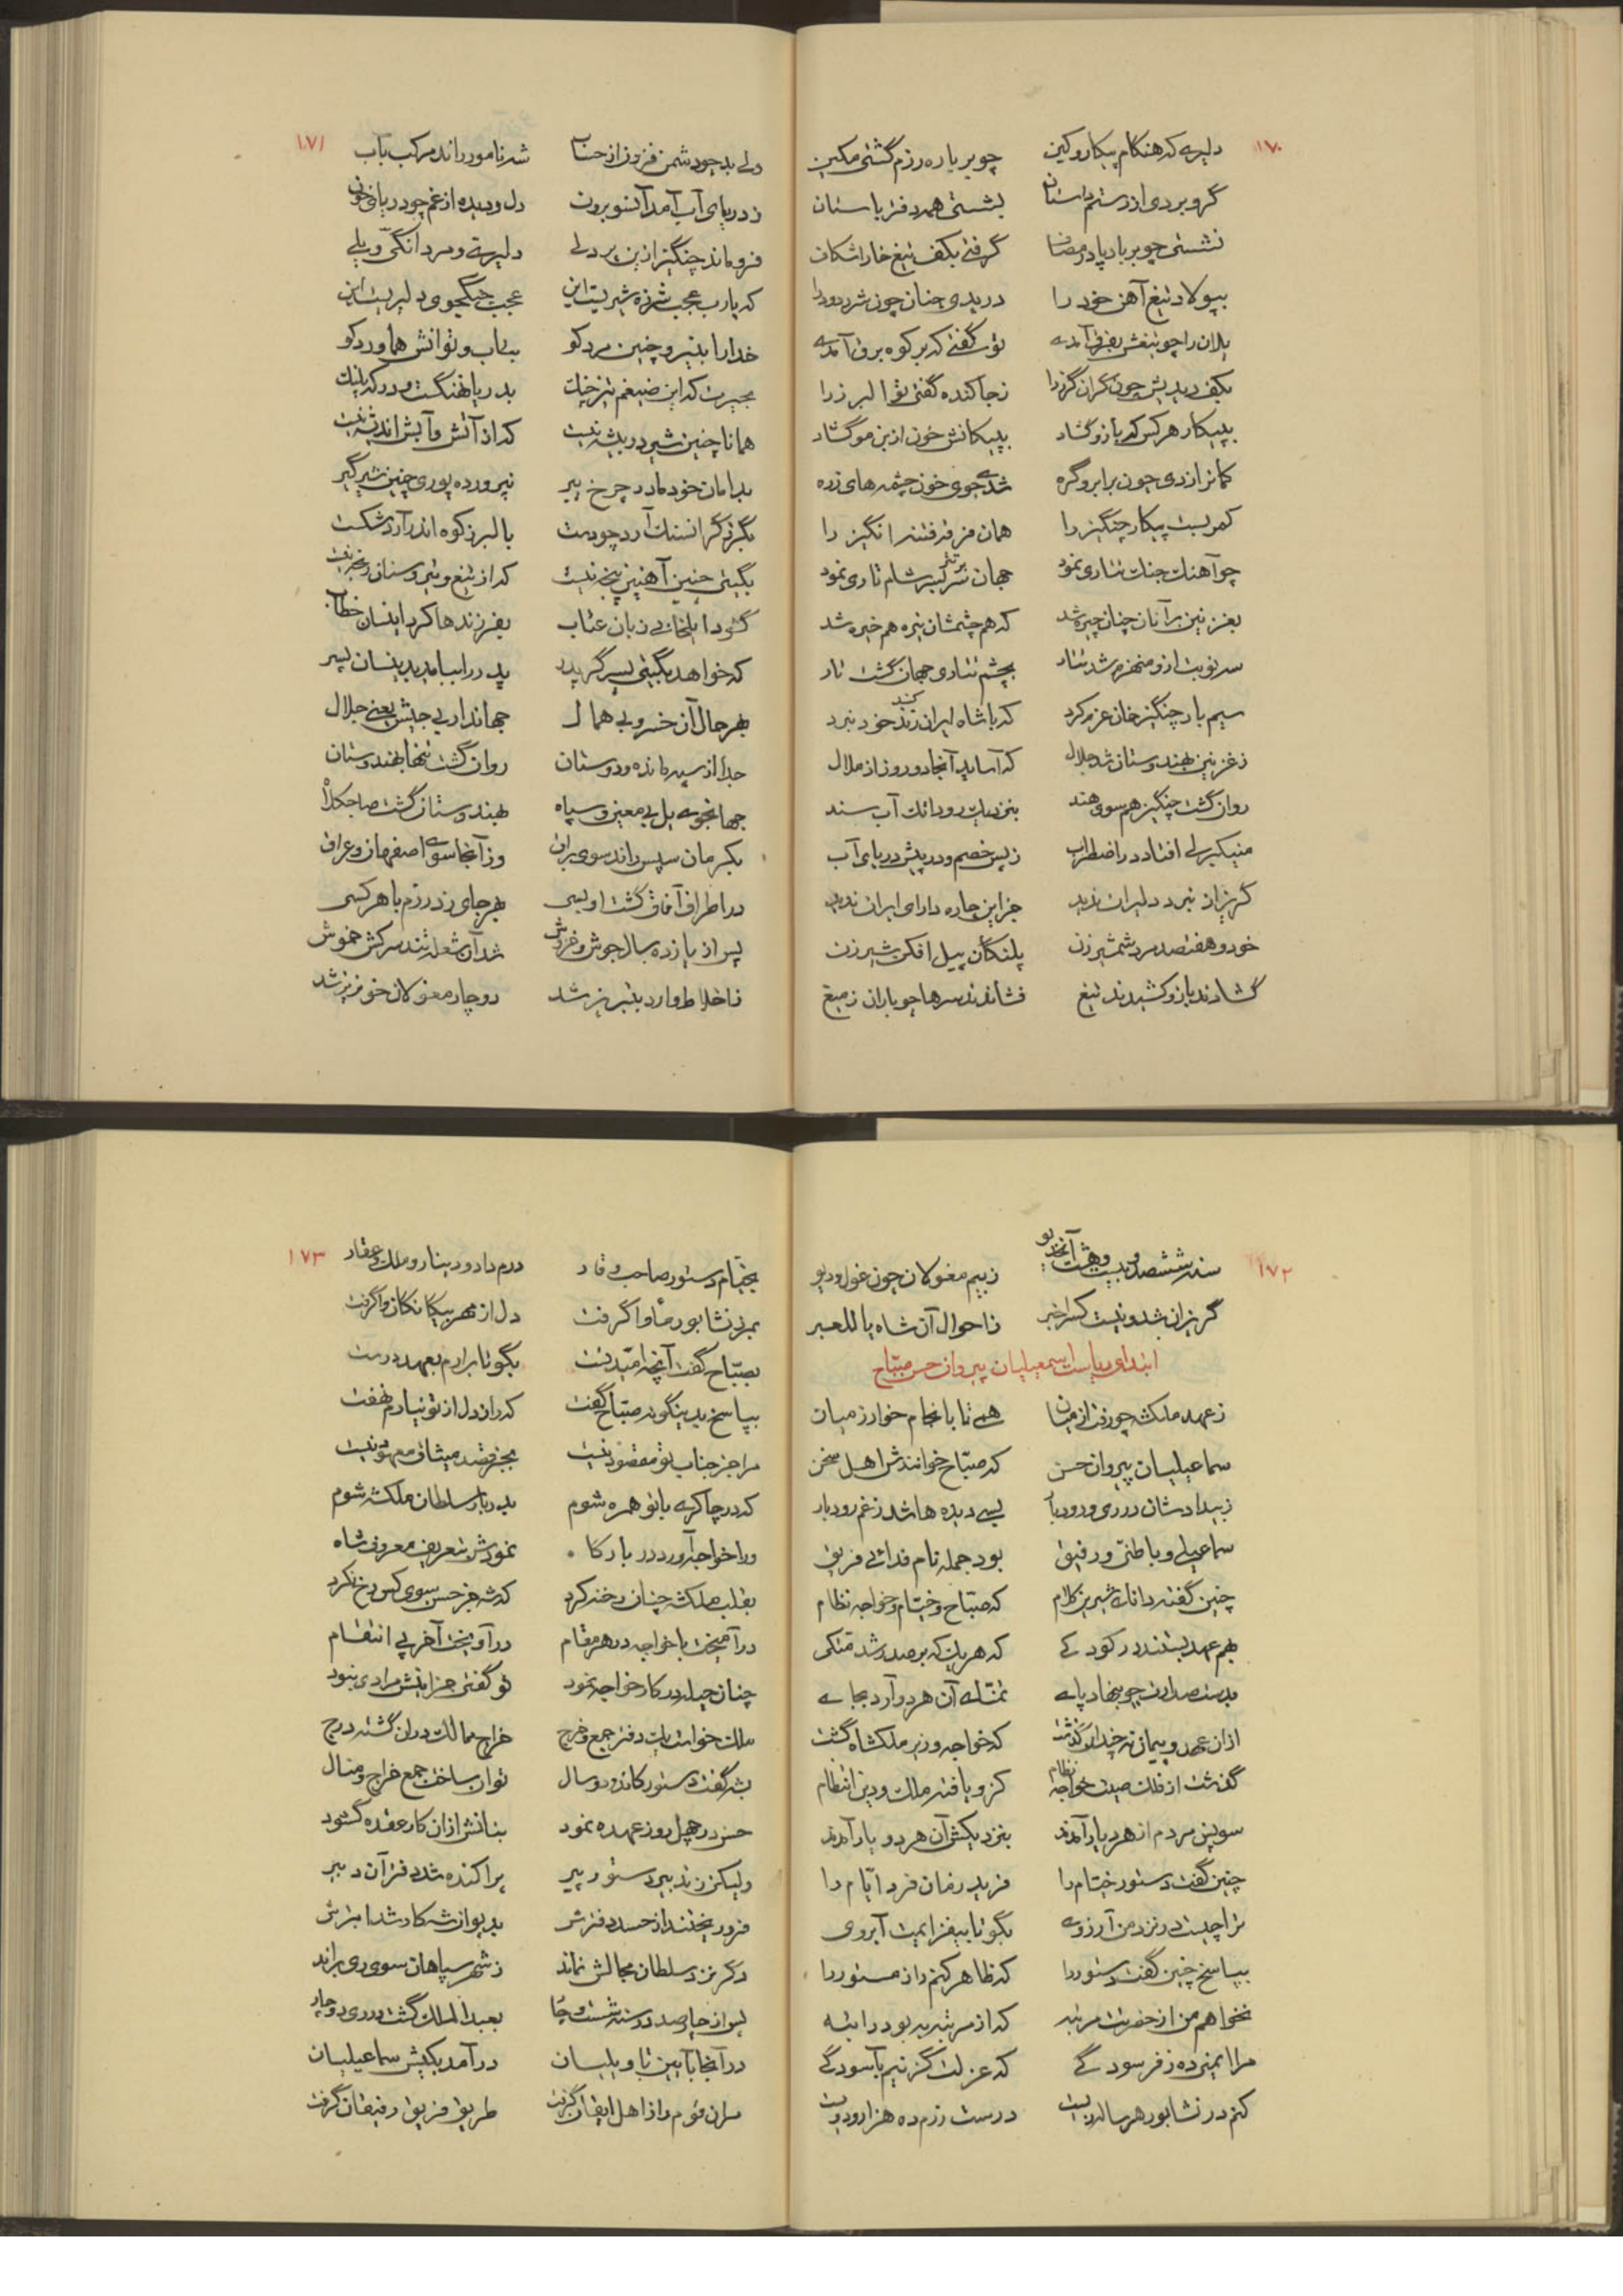 ۱۷۰
دلیری که هنگام پیکار و کین چو بر باره رزم گشتی مکین
گرو بردی از رستم داستان بشستی همه دفتر باستان
نشستی چو بر بادپا در مصاف گرفتی بکف تیغ خاراشکاف
بپولاد تیغ آهن خود را دریدی چنان چون شرر دود را
یلان را چو تیغش بفرق آمدی تو گفتی که بر کوه برق آمدی
بکف دیدیش چون گران گرز را ز جا کنده گفتی تو البرز را
بپیکار هر کس که بازو گشاد به پیکانش خون از بن مو گشاد
کمانرا زدی چون برابرو گره شدی جوی خون چشمه های زره
کمر بست پیکار چنگیز را همان مرز فتنه انگیز را
چو آهنگ جنگ تتاری نمود جهان تیره تر شام تاری نمود
بغزنین بر آنان چنان چیره شد که هم چشمشان تیره هم خیره شد
سه نوبت ازو منهزم شد تتار بچشم تتاری جهان گشت تار
سیم بار چنگیز خان عزم کرد که با شاه ایران کند خود نبرد
ز غزنین بهندوستان شد جلال که آساید آنجا دو روز از ملال
روان گشت چنگیز هم سوی هند بنزدیک رود اتک آب سند
منیکبرلی افتاد در اضطراب ز پس خصم و در پیش دریای آب
گریز از نبرد دلیران ندید جز این چاره دارای ایران ندید
خود و هفتصد مرد شمشیر زن پلنگان پیل افکن شیر زن
گشادند بازو کشیدند تیغ فشاندند سرها چو باران ز میغ
۱۷۱
ولی بد چو دشمن فزون از حساب شه نامور راند مرکب بآب
ز دریای آب آمد آنسو برون دل و دیده از غم چو دریای خون
فرو ماند چنگیز از آن پر دلی دلیری و مردانگی و یلی
که یارب عجب شرزه شیریست این عجب جنگجوی دلیریست این
خدا را بنیرو چنین مرد کو بتاب و توانش هماورد کو
بحیرت که این ضیغم تیز چنگ بدریا نهنگست و در که پلنگ
همانا چنین شیر در بیشه نیست که از آتش و آبش اندیشه نیست
بدامان خود مادر چرخ پیر نپرورده پوری چنین شیرگیر
بگرز گرانسنگ آرد چو دست بالبرز کوه اندر آرد شکست
بگیتی چنین آهنین پنجه نیست که از تیغ و تیر و سنان رنجه نیست
گشود ایلخانی زبان عتاب بفرزندها کرد اینسان خطاب
که خواهد بگیتی پسر گر پدر پدر را بباید بدینسان پسر
بهر حال آن خسرو بی همال جهاندار بی جیش یعنی جلال
جدا از سپه مانده و دوستان روان گشت تنها بهندوستان
جهانجوی یل بی معین و سپاه بهندوستان گشت صاحب کلاه
بکرمان سپس راند سوی براق وز آنجا سوی اصفهان و عراق
در اطراف آفاق گشت او بسی بهر جای زد رزم با هر کسی
پس از یازده سال جوش و خروش شد آن شعله تند سرکش خموش
ز اخلاط وارد بتبریز شد دوچار مغولان خونریز شد
۱۷۲
سنه ششصد و بیست و هشت آنخدیو ز بیم مغولان چون غول و دیو
گریزان شد و نیست کس را خبر ز احوال آن شاه یا للعبر
ابتدای ریاست اسمعیلیان پیروان حسن صباح
ز عهد ملکشه چو رفت از میان همی تا بانجام خوارزمیان
سماعیلیان پیروان حسن که صباح خوانندش اهل سخن
ز بیدادشان در ری و رودبار بسی دیده ها شد ز غم رودبار
سماعیلی و باطنی و رفیق بود جمله نام فدائی فریق
چنین گفته دانای شیرین کلام که صباح و خیام و خواجه نظام
بهم عهد بستند در کودکی که هر یک که بر صدر شد متکی
بدست صدارت چو بنهاد پای تمنای آن هر دو آرد بجای
از آن عهد و پیمان نه چندان گذشت که خواجه وزیر ملکشاه گشت
گذشت از فلک صیت خواجه نظام کزو یافته ملک و دین انتظام
سویش مردم از هر دیار آمدند بنزدیکش آن هر دو یار آمدند
چنین گفت دستور خیام را فرید زمان فرد ایام را
ترا چیست در نزد من آرزوی بگو تا بیفزایمت آبروی
بپاسخ چنین گفت دستور را که ظاهر کنم راز مستور را
نخواهم من از حضرتت مرتبه که از مرتبه به بود راتبه
مرا ایمنی ده ز فرسودگی که عزلت گزینم بآسودگی
کنم در نشابور هر ساله زیست درستِ زرم ده هزار و دویست
۱۷۳
بخیام دستور صاحب وقار درم داد و دینار و ملک و عقار
بمرز نشابور مأوا گرفت دل از مهر بیگانگان وا گرفت
بصباح گفت آنچه امید تست بگو تا برارم بعهد درست
بپاسخ بدینگونه صباح گفت که راز دل از تو نیارم نهفت
مرا جز جناب تو مقصود نیست بجز قصد میثاق معهود نیست
که در چاکری با تو همره شوم بدربار سلطان ملکشه شوم
ورا خواجه آورد در بارگاه نمودش بتعریف معروف شاه
بقلب ملکشه چنان رخنه کرد که شه جز حسن سوی کس رخ نکرد
در آمیخت با خواجه در هر مقام در آویخت آخر پی انتقام
چنان حیله در کار خواجه نمود تو گفتی جز اینش مرادی نبود
ملک خواست یک دفتر جمع و خرج خراج ممالک در آن گشته درج
بشه گفت دستور کاندر دو سال توان ساخت جمع خراج و منال
حسن در چهل روز عهده نمود بنانش از آن کار عقده گشود
ولیکن ز تدبیر دستور پیر پراکنده شد دفتر آن دبیر
فرو ریختند از حسد دفترش بدیوان شه کار شد ابترش
دگر نزد سلطان مجالش نماند ز شهر سپاهان سوی ری براند
پس از چارصد در سنه شست و چار بعبدالملک گشت در ری دوچار
در آنجا بآیین تاویلیان در آمد بکیش سماعیلیان
سران قوم را ز اهل ایقان گرفت طریق فریق رفیقان گرفت